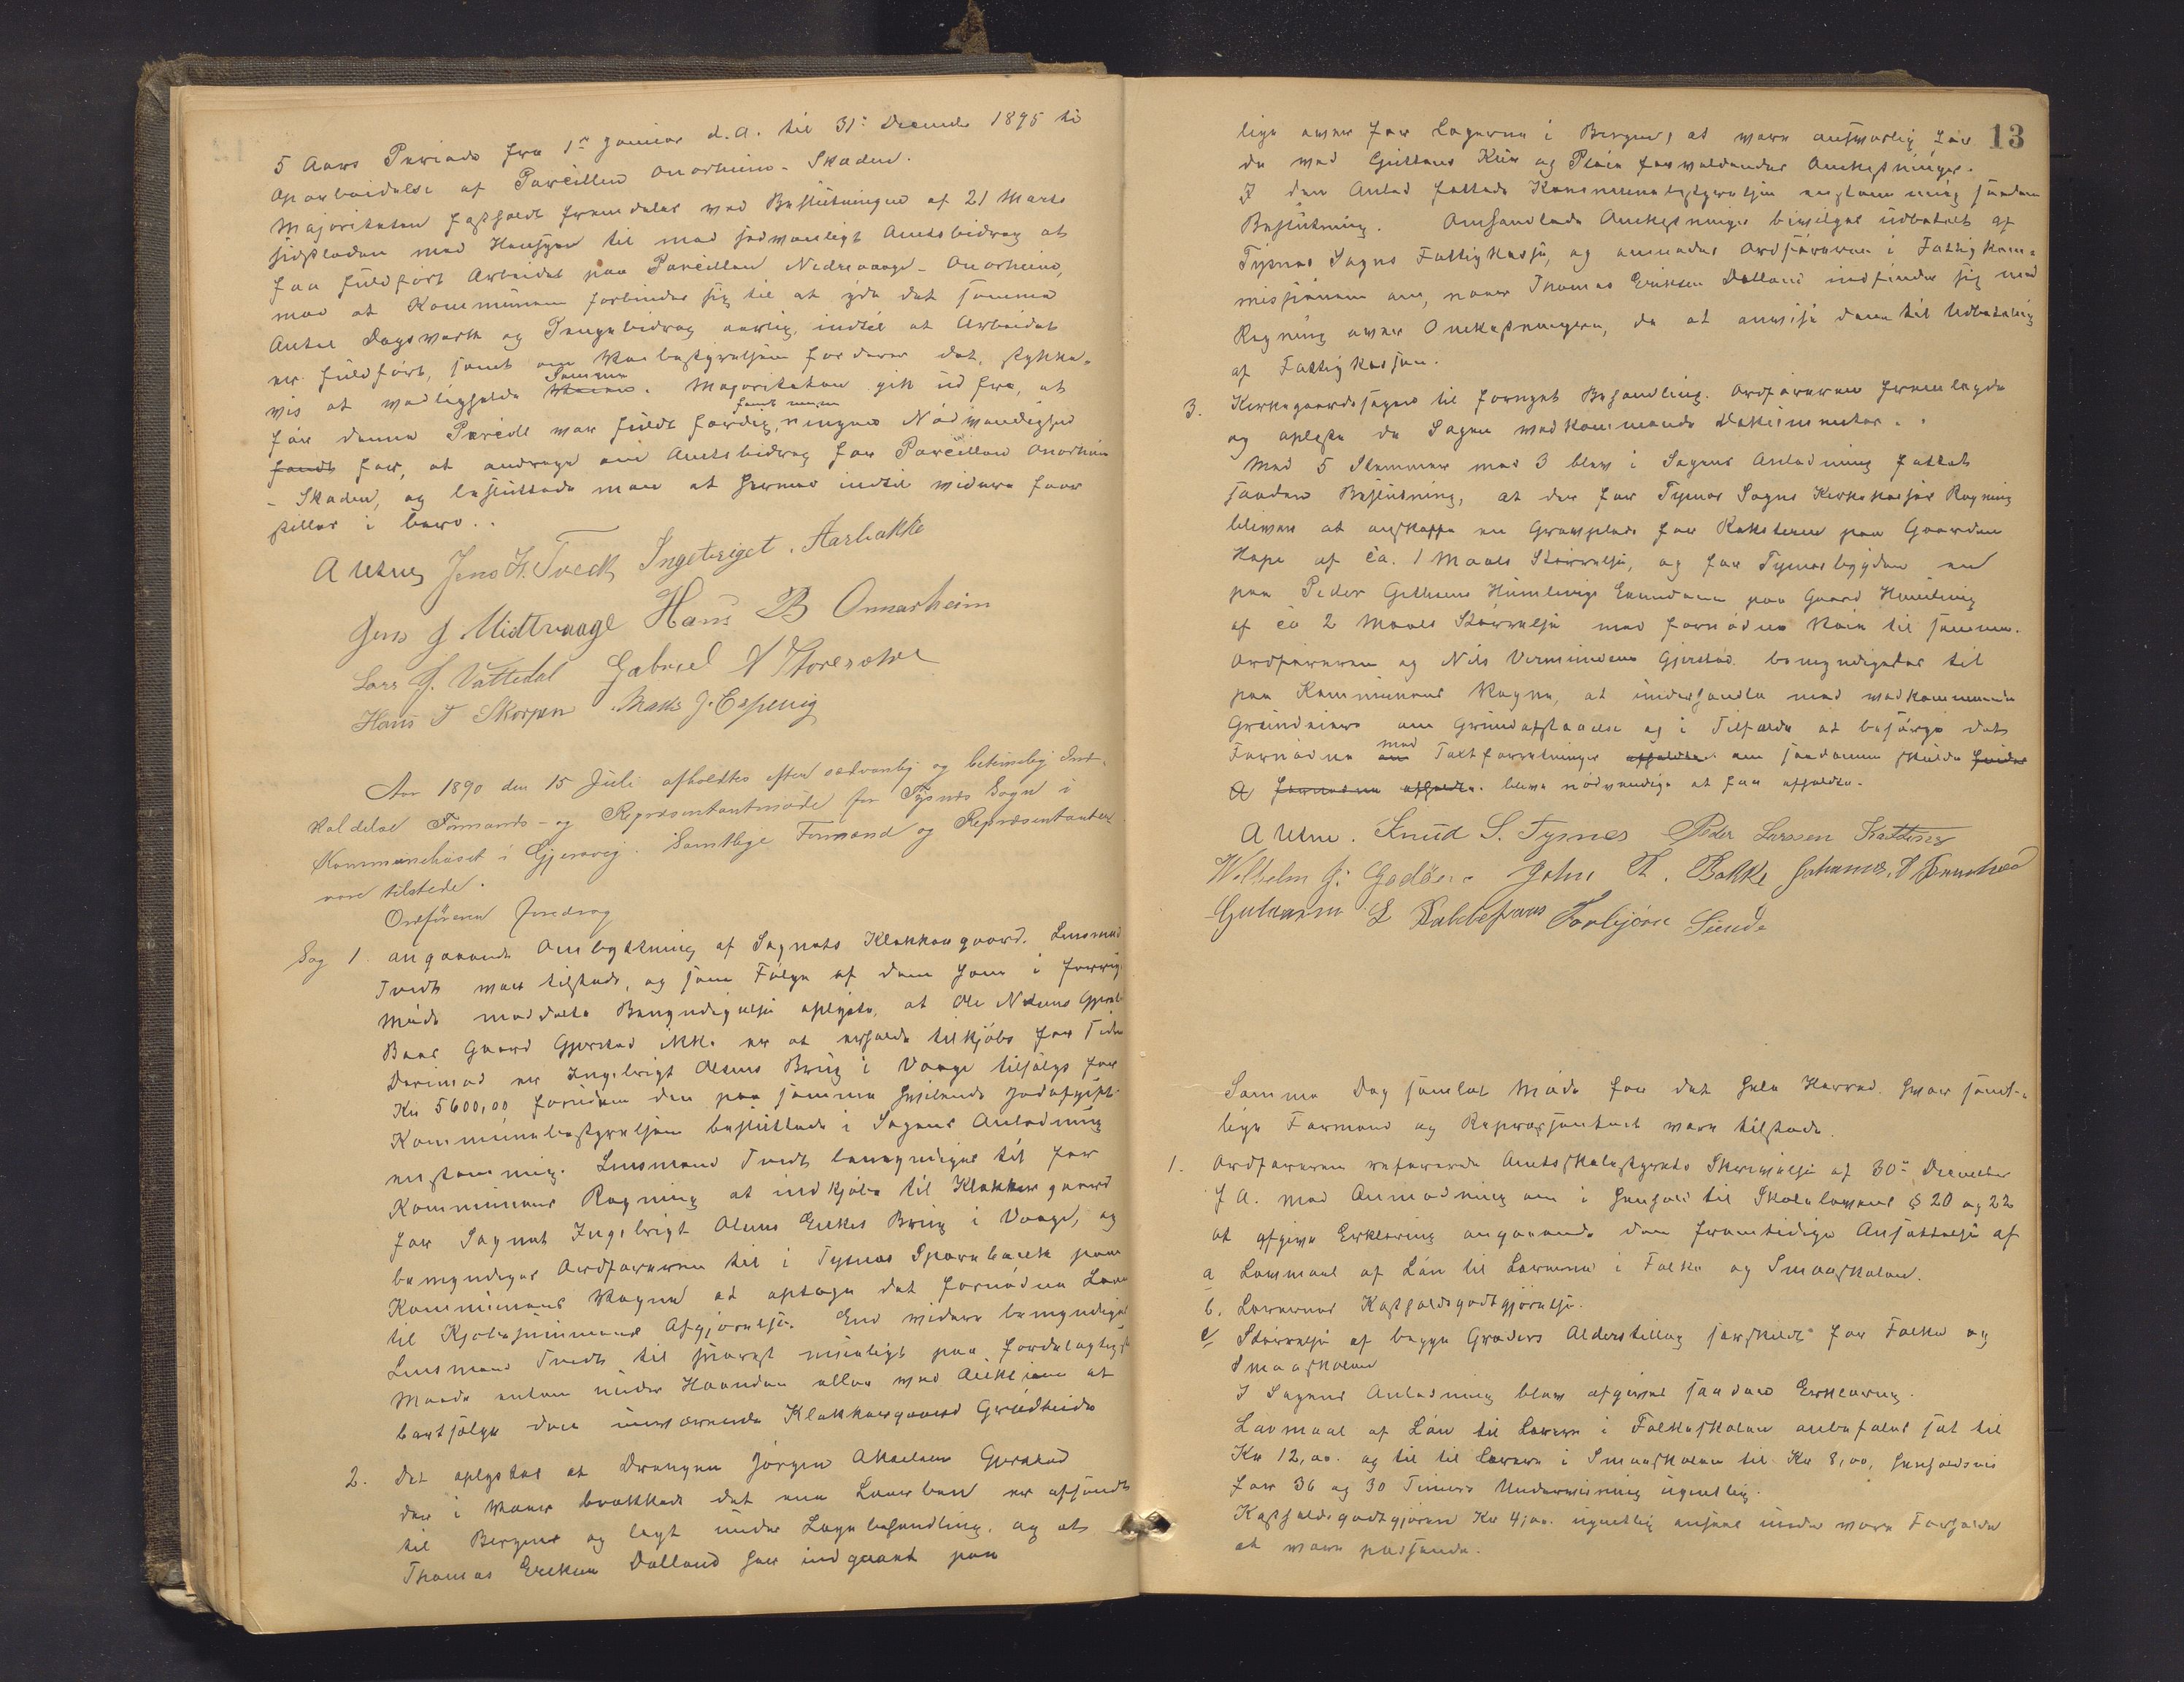 5 Aars Periode fra 1ste Januar d.A. til 31te December 1895 til
Oparbeidelse af Parcellen Onarheim - Skaden.
Majoriteten fastholdt fremdeles ved Beslutningen af 21 Marts
sidstleden med Hensyn til med sedvanligt Amtsbidrag at
faa fuldført Arbeidet paa Parcellen Nedrevaage - Onarheim,
mod at Kommunen forbinder sig til at yde det samme
Antal Dagsverk og Pengebidrag aarlig, indtil at Arbeidet
er fuldført, samt om Veibestyrelsen fordrer det, stykke-
vis at vedligeholde Samme. Majoriteten gik ud fra, at
før denne Parcel var fuldt færdig, fandt man ningen Nødvendighed
for, at andrage om Amtsbidrag for Parcellen Onarheim
- Skaden, og besluttede man at hermed indtil videre faar
stilles i bero..
A Uthne Jens H. Tvedt Ingebrigt Aarbakke
Jens J Midtvaage Hans B Onnarheim
Lars G. Vattedal Gabriel A Storesætre
Hans T Skorpen Mats J. Espevig
Aar 1890 den 15 Juli afholdtes efter sædvanlig og betimelig Ind-
kaldelse Formands- og Repræsentantmøde for Tysnes Sogn i
Kommunehuset i Gjersvig. Samtlige Formænd og Repræsentanter
vare tilstede.
Ordføreren foredrog
Sag 1. angaaende Ombytning af Sognets Klokkergaard. Lensmand
Tvedt var tilstede, og som Følge af den ham i forrige
Møde meddelte Bemyndigelse oplyste, at Ole Nilsens
Brug Gaard Gjerstad ikke er at erholde tilkjøbs for Tiden
Derimod er Ingebrigt Olsens Brug i Vaage tilsalgs for
Kr 5600,00 foruden den paa samme hvilende Jordafgift.
Kommunebestyrelsen besluttede i Sagens Anledning
enstemmig. Lensmand Tvedt bemyndiges til for
Kommunens Regning at indkjøbe til Klokkergaard
for Sognet Ingebrigt Olsens Enkes Brug i Vaage, og
bemyndiges Ordføreren til i Tysnes Sparebank paa
Kommunens Vegne at optage det fornødne Laan
til Kjøbesummens Afgjørelse. End videre bemyndiges
Lensmand Tvedt til snarest mueligt paa fordelagtigste
Maade enten under Haanden eller ved Auktion at
bortsælge den nuværende Klokkergaard Grindheim
2. Det oplystes at Drengen Jørgen Gjerstad
der i Vaar brækkede det ene Laarben er afsendt
til Bergen og lagt under Lægebehandling, og at
Thomas Eriksen Dalland har indgaaet paa
13
lige over for Lægerne i Bergen, at være ansvarlig for
de ved Guttens Kur og Pleie forvoldende Omkostninger.
I den Anled fattede Kommunebestyrelsen enstemmig saadan
Beslutning. Omhandlede Omkostninger bevilges udbetalt af
Tysnes Sogns Fattigkasse, og anmodes Ordføreren i Fattigkom-
missionen om, naar Thomas Eriksen Dalland indfinder sig med
Regning over Omkostningerne, da at anvise denne til Udbetaling
af Fattigkassen.
3. Kirkegaardssagen til fornyet Behandling. Ordføreren fremlagde
og oplæste de Sagen vedkommende Dokumenter.
Med 5 Stemmer mod 3 blev i Sagens Anledning fattet
saadan Beslutning, at der for Tysnes Sogns Kirkekasses Regning
bliver at anskaffe en Gravplads for Reksteren paa Gaarden
Hope af ca. 1 Maals Størrelse, og for Tysnesbygden en
paa Peder Humlevigs Eiendom paa Gaard Humlevig
af ca 2 Maals Størrelse med fornøden Vei til samme.
Ordføreren og Nils Vermundsen Gjerstad bemyndigedes til
paa Kommunens Vegne, at underhandle med vedkommende
Grundeiere om Grundafstaaelse og i Tilfælde at besørge det
Fornødne med Taxtforretninger om saadanne skulde
blive nødvendige at faa afholdte.
A Uthne. Knud S. Tysnes Peder Larssen Kattnes
Wilhelm G. Godøen John T. Bakke Johannes
Torbjørn Sunde
Samme Dag samlet Møde for det hele Herred hvor samt-
lige Formænd og Repræsentant vare tilstede.
1. Ordføreren refererte Amtsskolestyrets Skrivelse af 30te December
f A. med Anmodning om i Henhold til Skolelovens § 20 og 22
at afgive Erklæring angaaende den fremtidige Ansættelse af
a Lavmaal af Løn til Lærerne i Folke og Smaaskolen.
b. Lærernes Kostholdsgodtgjørelse.
c Størrelse af begge Graders Alderstillæg særskildt for Folke og
Smaaskolen
I Sagens Anledning blev afgivet saadan Erklæring.
Lavmaal af Løn til Lærere i Folkeskolen anbefales sat til
Kr 12,00. og til til Lærere i Smaaskolen til Kr 8,00, henholdsvis
for 36 og 30 Timers Underviisning ugentlig.
Kostholdsgodtgjøren Kr 4,00. ugentlig ansees under vore Forholde
at være passende.